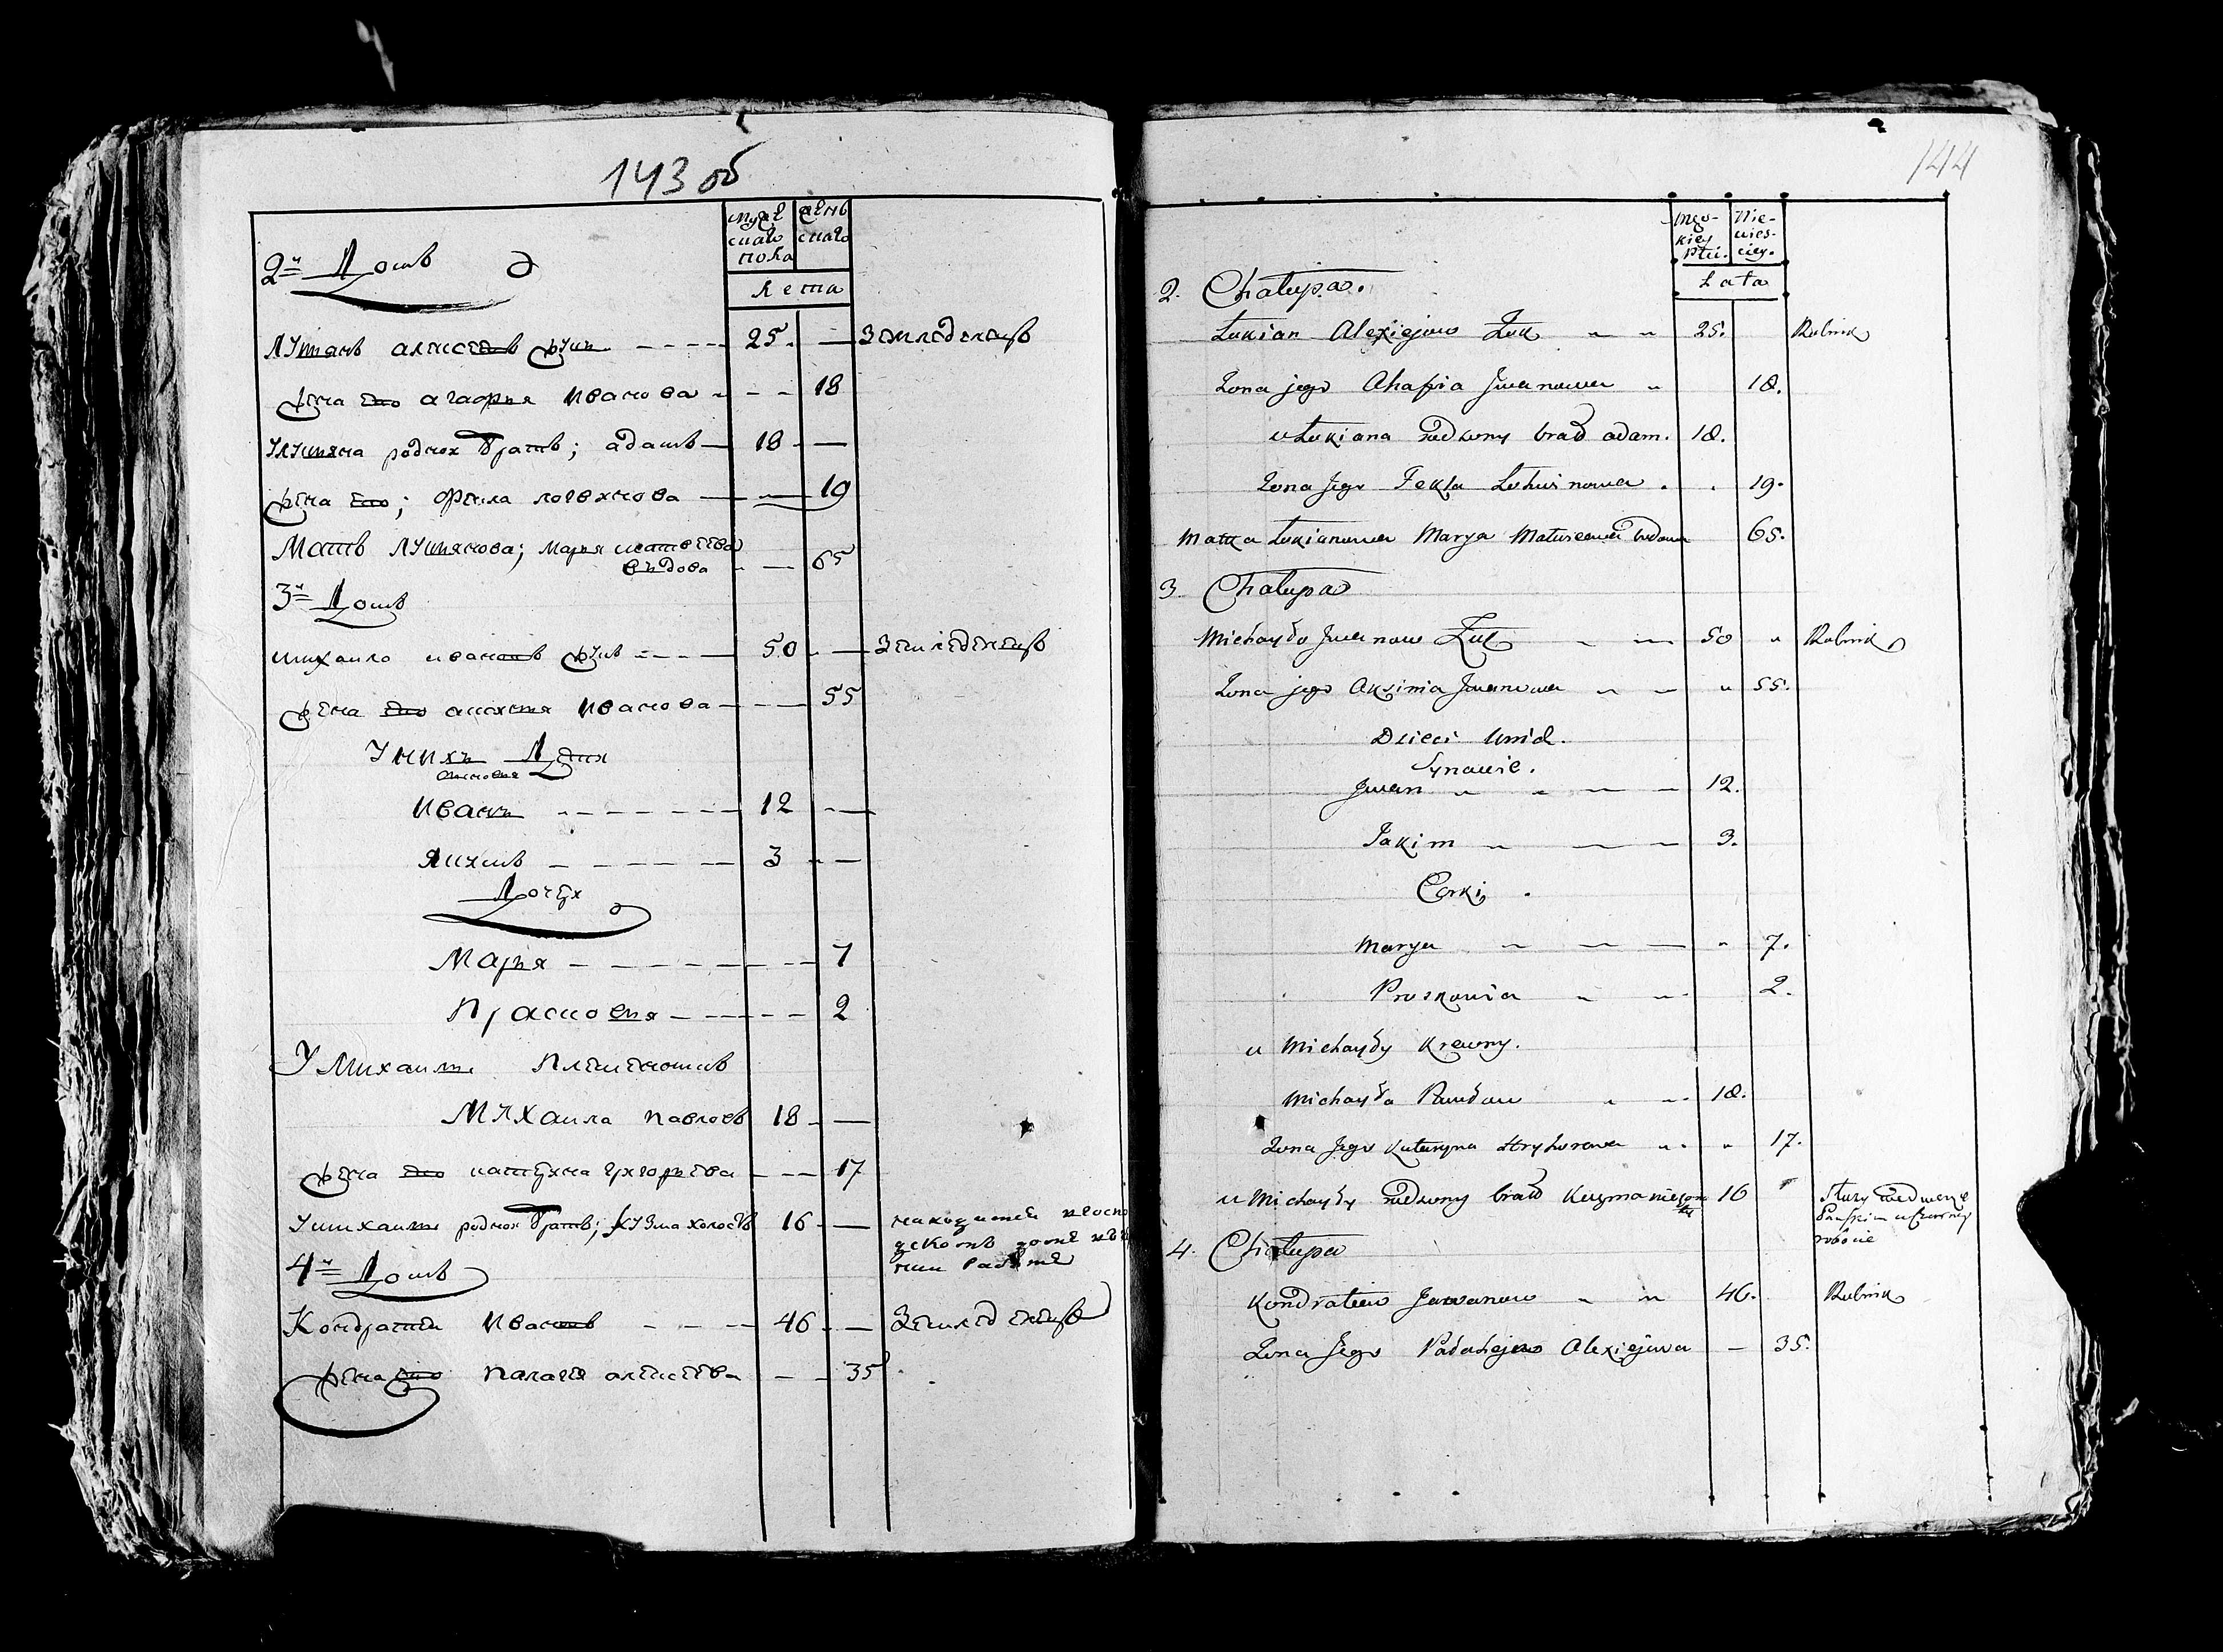 143 об
мужескаго пола
женскаго
Лета
2й Домъ
Лукянъ алексеевъ жукъ 25. — Земледелецъ
жена его агафия Иванова — 18
У лукяна родной братъ; адамъ — 18 —
жена его; фекла логвинова — 19
Мать Лукянова; Марья матвеева
вдова — 65
3й Домъ
михаило ивановъ жукъ — 50 — Земледелецъ
жена его Иванова — 55
У нихъ Дети
сыновья
Иванъ — 12 —
якимъ — 3 —
Дочери
Марья — 7
Прасковья — 2
У Михаилы
Михаила павловъ 18 —
жена его катерина григорьева — 17
У михаилы родной братъ; кузма холостъ 16 —
4й Домъ
Кондратей Ивановъ — 46 — Земледелецъ
жена его палагея алексеева — 35
144
Męs-
kiey
Płci.
Nie-
wies-
ciey.
Lata
2. Chałupa.
Łukian Alexiejow Żuk 25. Rolnik
Żona jego Ahafia Jwanowa 18.
u Łukiana rodzony brat adam. 18.
Żona Jego Tekla Lohwinowa 19.
Matka Łukianowa Marya Matwieowa wdowa 65.
3. Chałupa
Michayło Jwanow Żuk 50 Rolnik
Żona jego Aksinia Jwanowa 55.
Dzieci u nich.
Synowie.
Jwan 12.
Jakim 3.
Corki.
Marya 7.
Proskowia 2.
u Michayły Krewny.
Michayła Pawłow 18.
Żona Jego Kateryna Hryhorowa 17.
u Michayły rodzony brat Kuzma 16
4. Chałupa
Kondratiew Jwanow 46. Rolnik
Żona Jego Alexiejowa — 35.